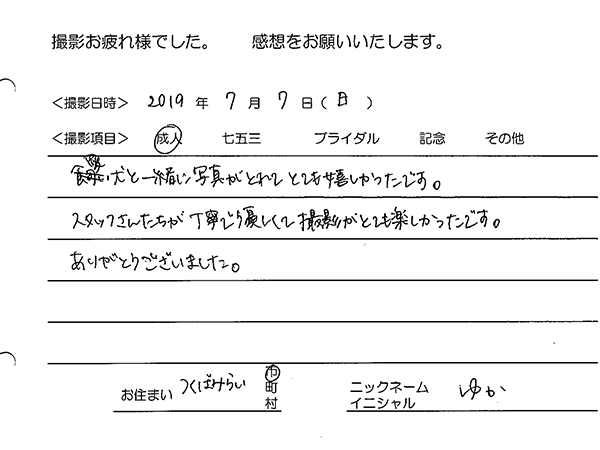 撮影お疲れ様でした。 感想をお願いいたします。
<撮影日時> 2019 年 7 月 7 日(日)
<撮影項目> 成人 七五三 ブライダル 記念 その他
飼い犬と一緒に写真がとれてとても嬉しかったです。
スタッフさんたちが丁寧で優しくて撮影がとても楽しかったです。
ありがとうございました。
お住まい つくばみらい 市 町 村
ニックネーム イニシャル ゆか